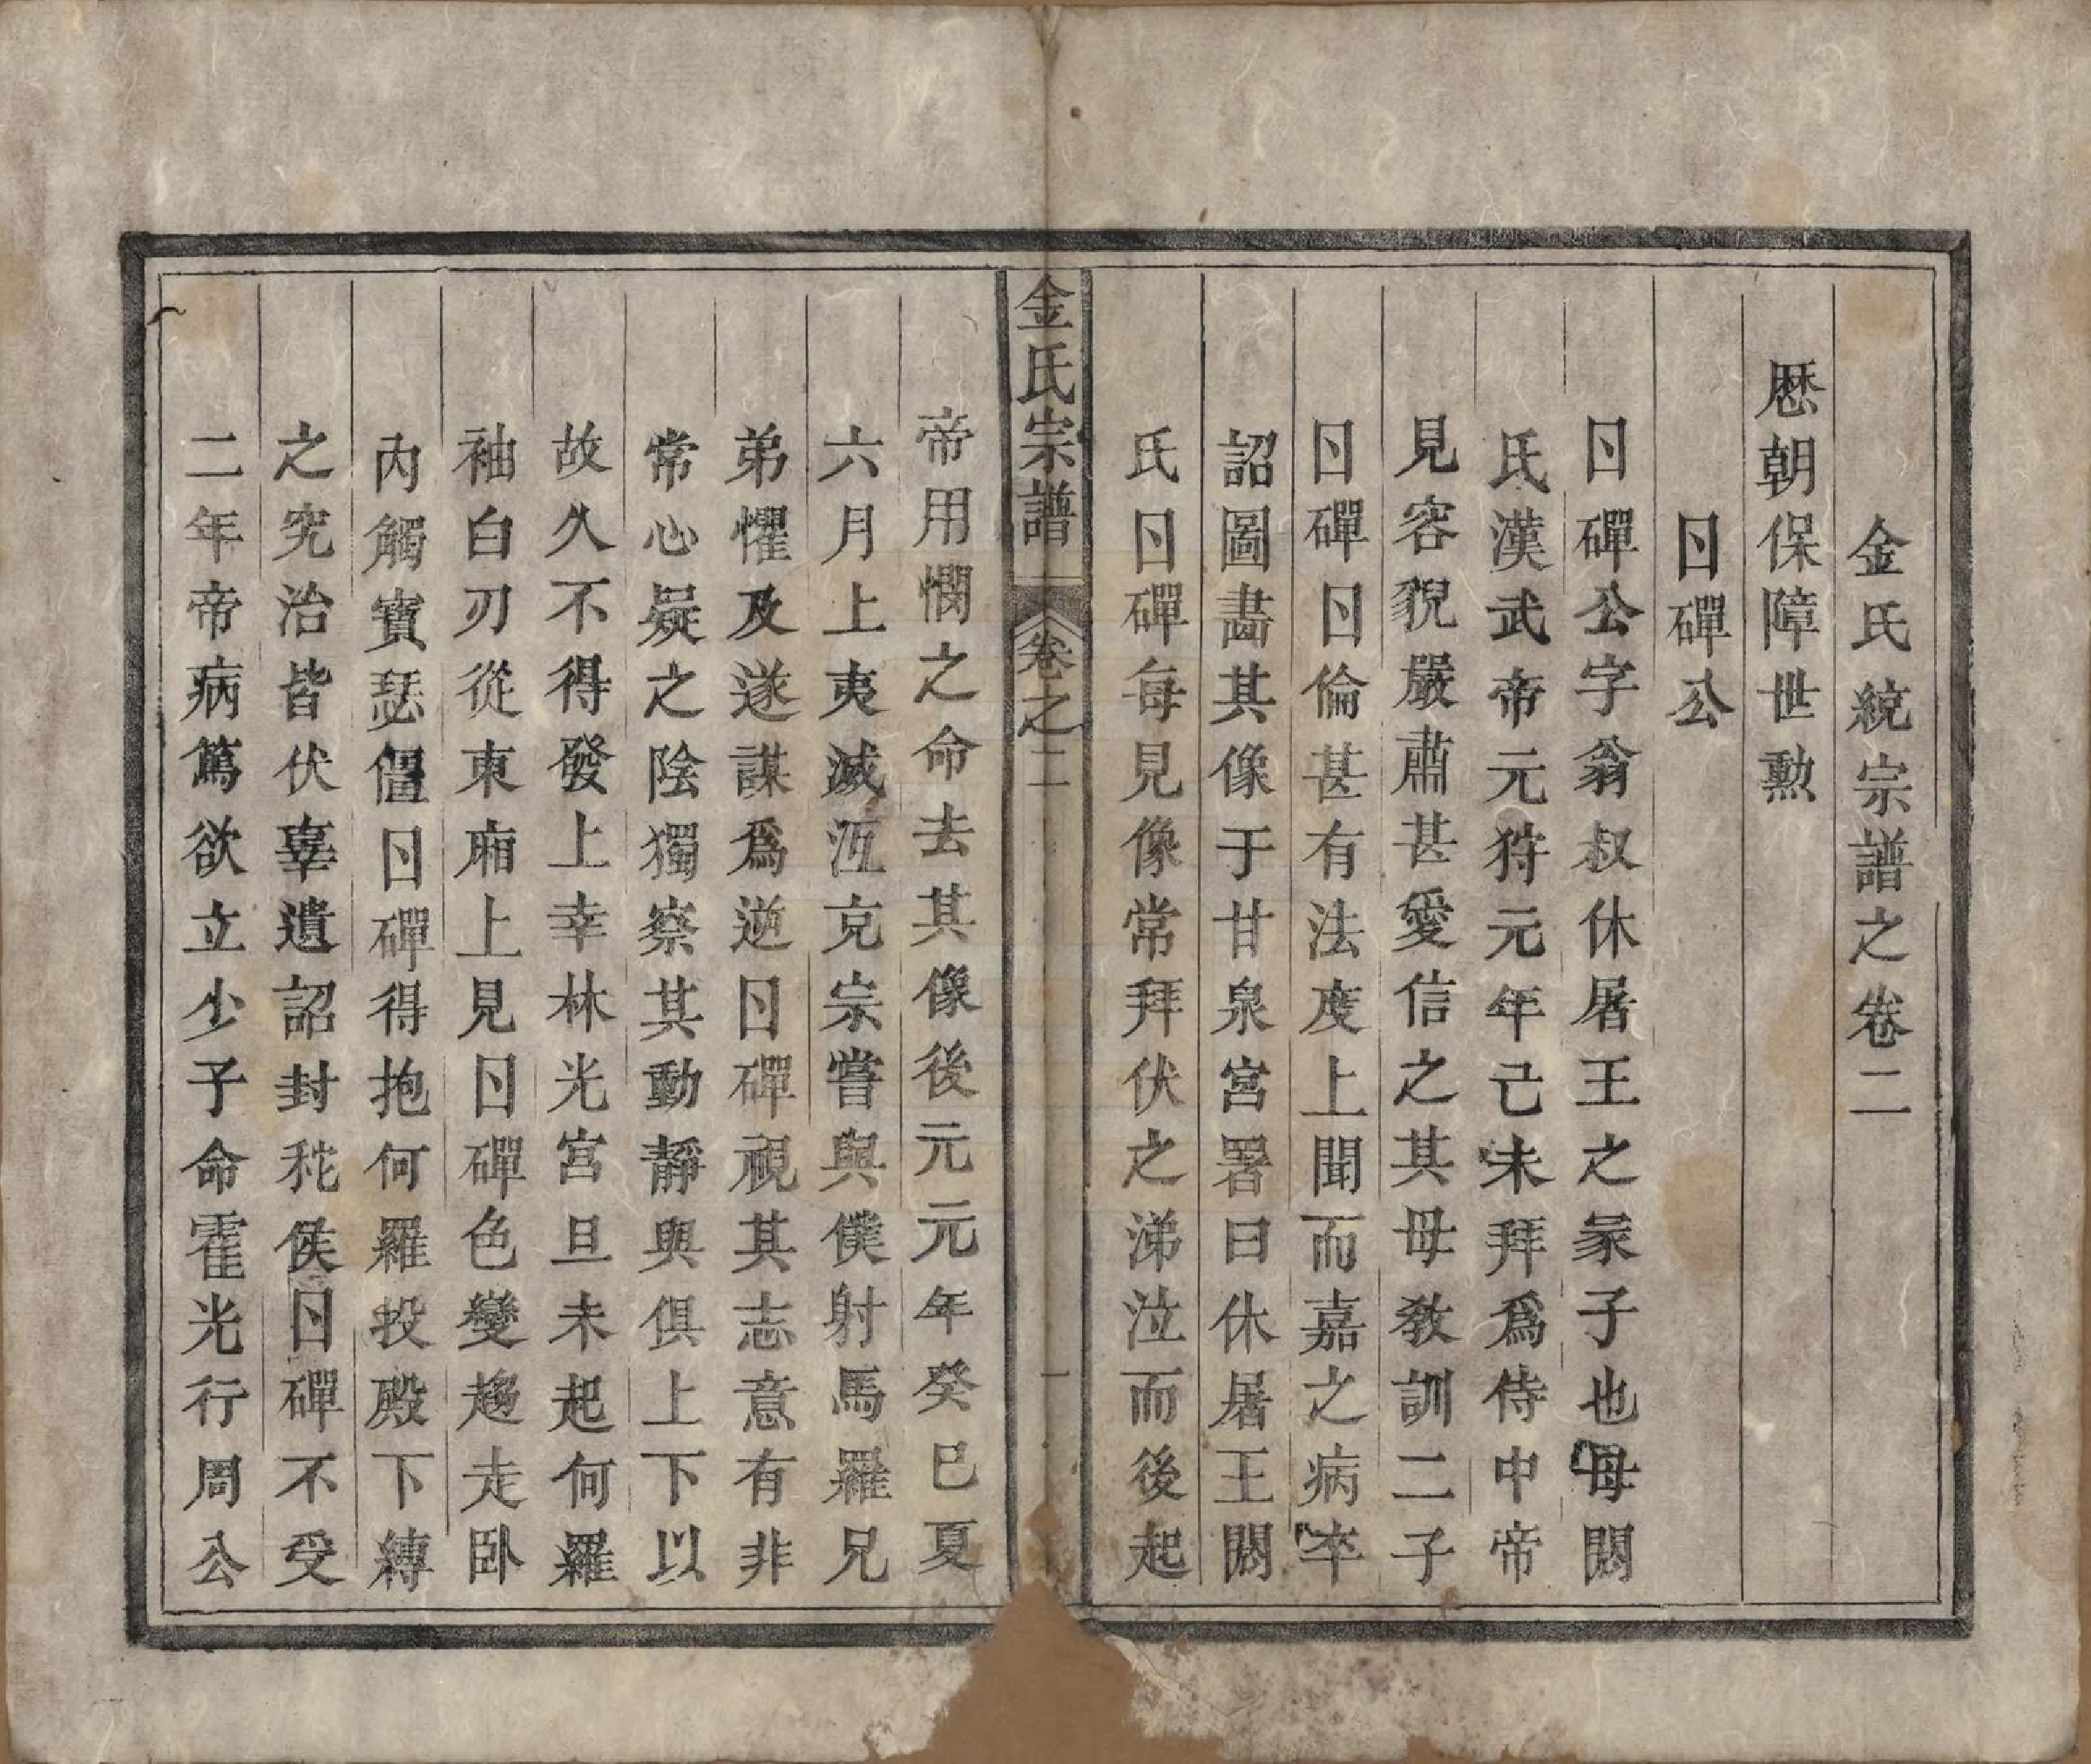 金氏統宗譜之卷二
歷朝保障世勲
日磾公
日磾公字翁叔休屠王之冢子也母閼
氏漢武帝元狩元年己未拜爲侍中帝
見容貌嚴肅甚愛信之其母敎訓二子
日磾日倫甚有法度上聞而嘉之病卒
詔圖畵其像于甘泉宮署曰休屠王閼
氏日磾每見像常拜伏之涕泣而後起
金氏宗譜 卷之二 一
帝用憫之命去其像後元元年癸巳夏
六月上夷滅江克宗嘗與僕射馬羅兄
弟懼及遂謀爲逆日磾視其志意有非
常心疑之陰獨察其動靜與俱上下以
故久不得發上幸林光宮旦未起何羅
袖白刃從東廂上見日磾色變趨走卧
內觸寶瑟僵日磾得抱何羅投殿下縛
之究治皆伏辜遺詔封秺侯日磾不受
二年帝病篤欲立少子命霍光行周公